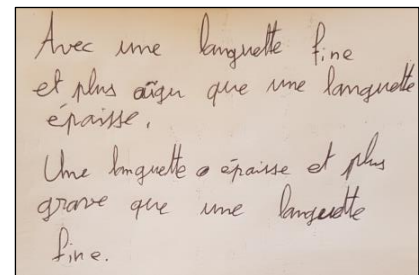 Avec une languette fine
et plus aïgu que une languette
épaisse.
Une languette épaisse et plus
grave que une languette
fine.